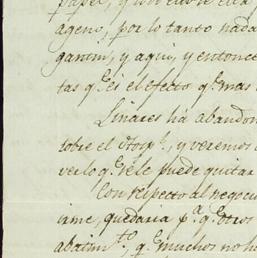 papel, y
ageno, por lo tanto nada
garnim; y aqui, y entonce
tas q.e es el efecto q.e mas
Linares ha abandon
sobre el, y veremos
verlo q.e se le puede quitar
Con respecto al negocio
irme, quedaria p.a q.e otros
abatim.to, q.e muchos no h